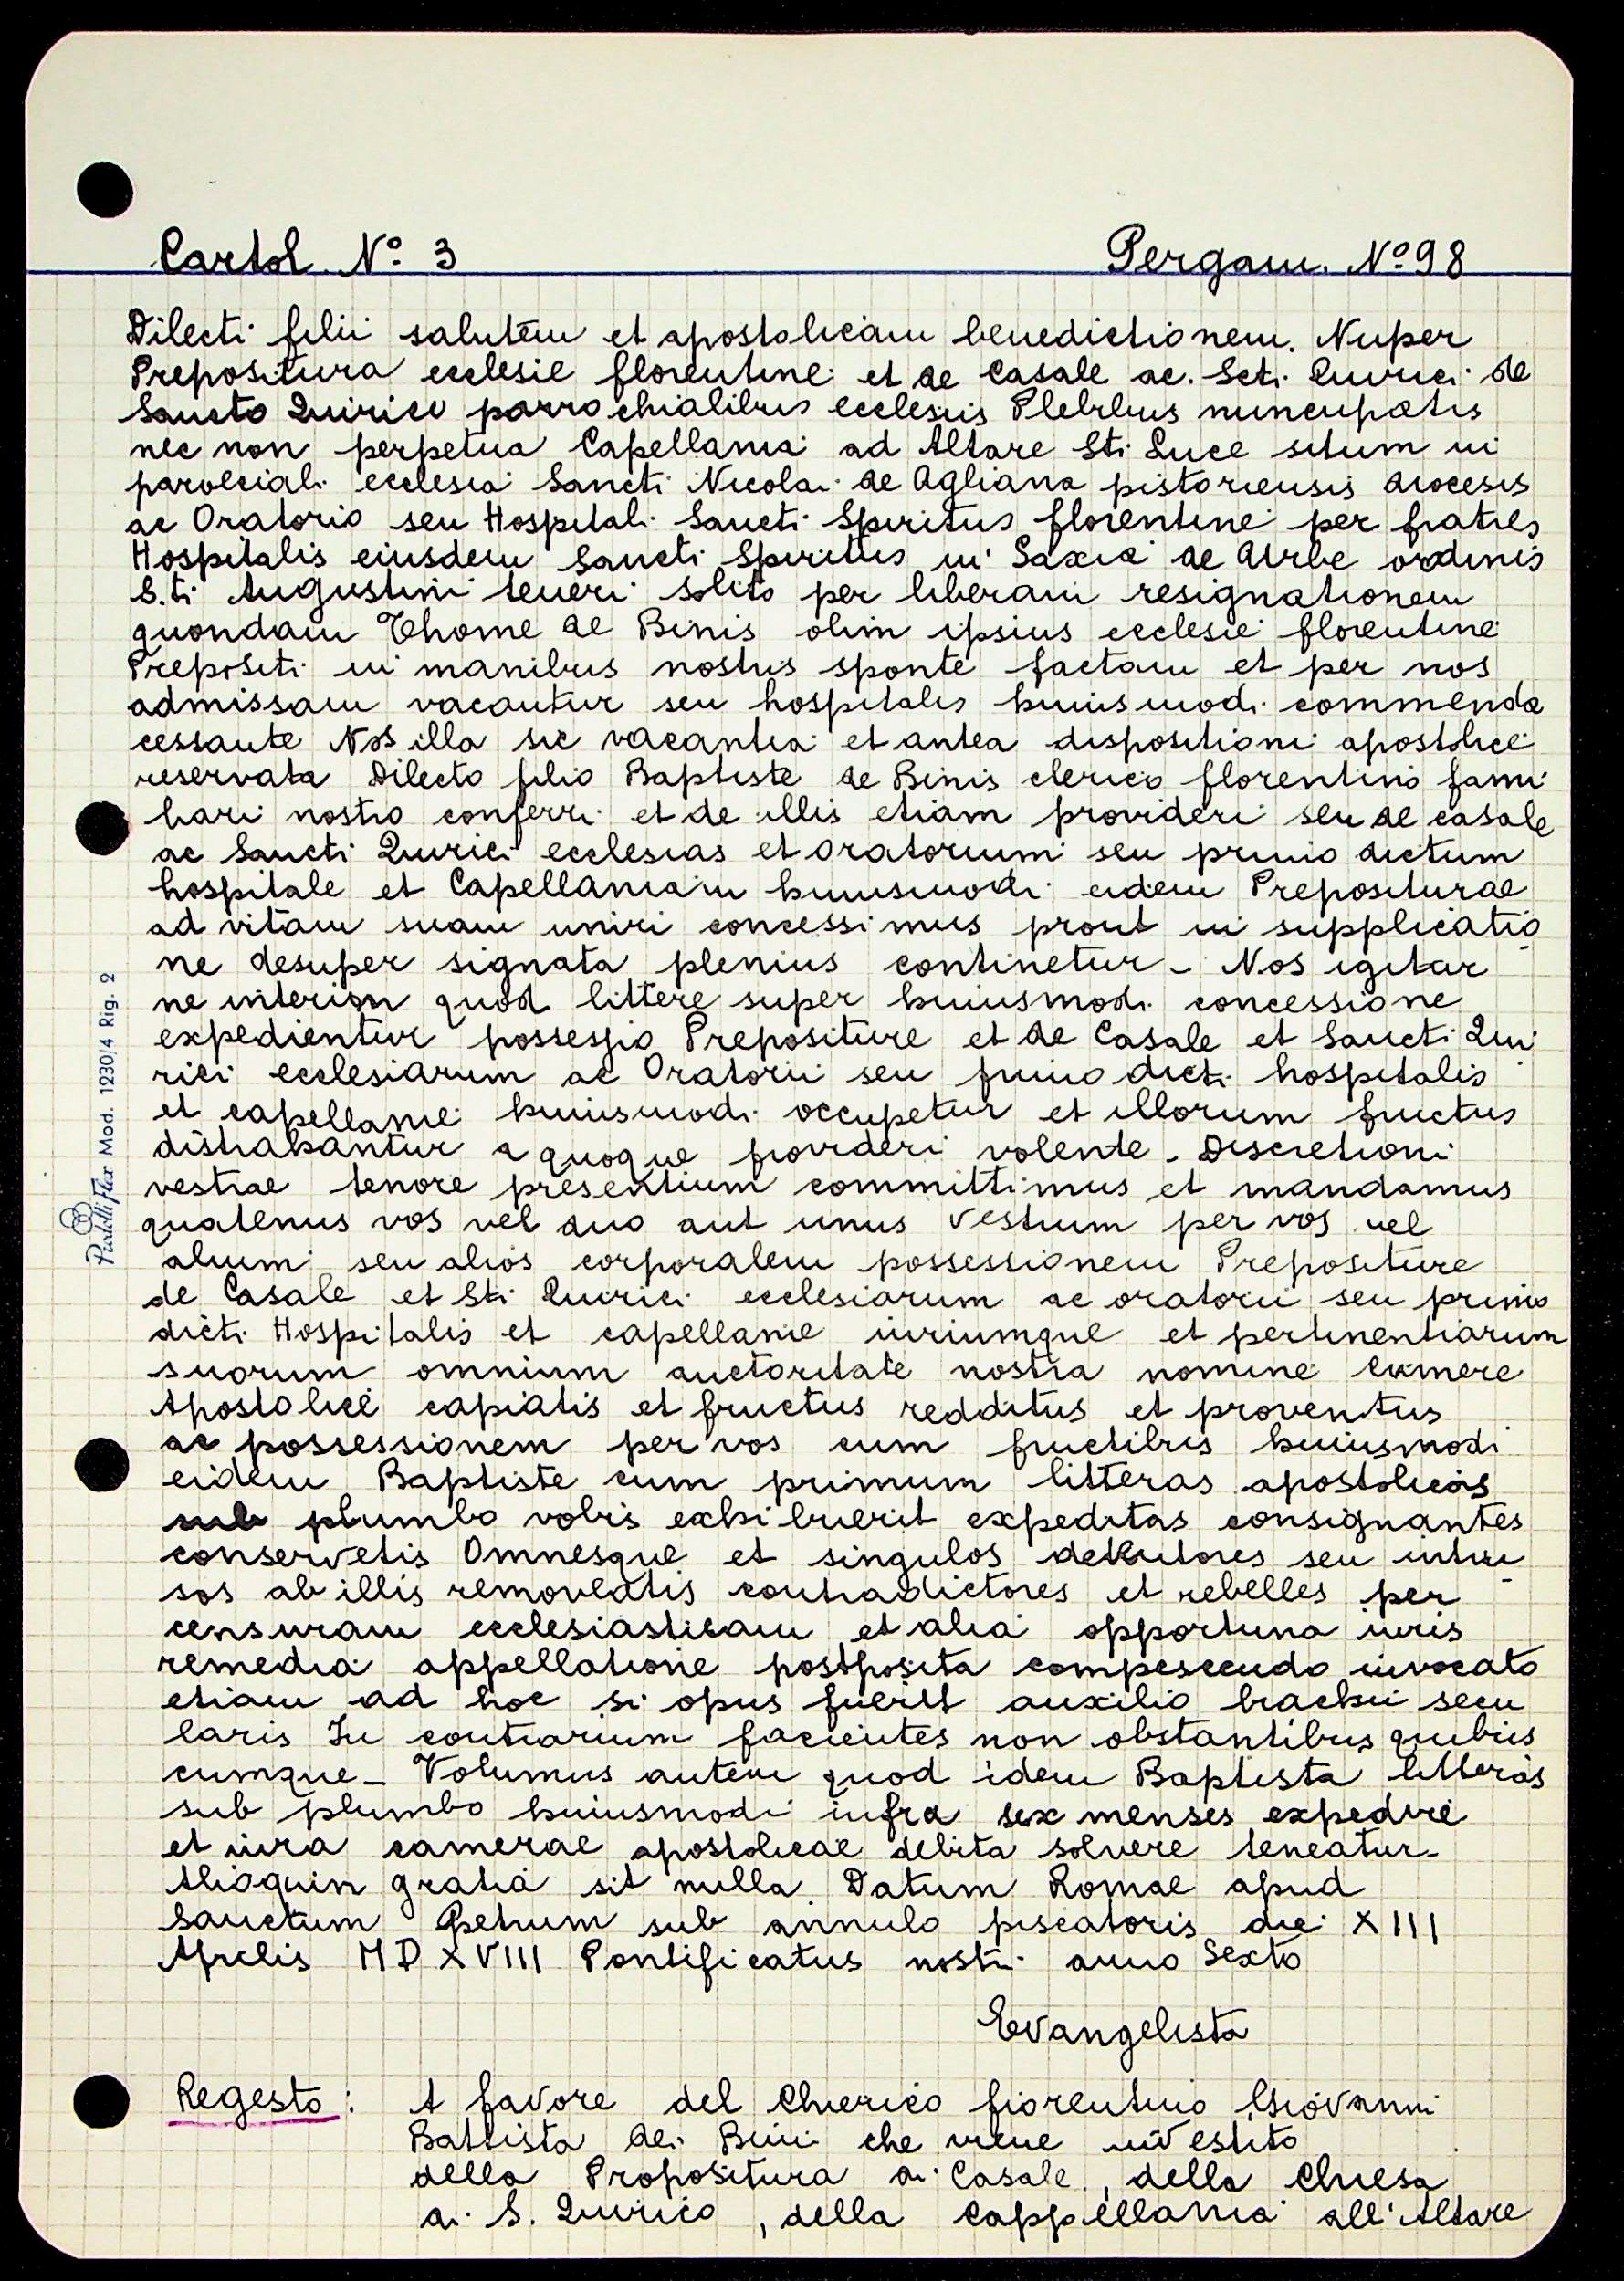 Cartol. Nº 3
Pergam. Nº 98
Dilecti filii salutem et apostolicam benedictionem. Nuper
Prepositura ecclesie florentine et de Casale ac. Scti. Quirici de
Sancto Quirico parrochialibus ecclesiis Plebibus nuncupatis
nec non perpetua Capellania ad Altare Sti Luce situm in
paroeciali ecclesia Sancti Nicolai de Agliana pistoriensis diocesis
ac Oratorio seu Hospitali Sancti Spiritus florentine per fratres
Hospitalis eiusdem Sancti Spiritus in Saxia de Urbe ordinis
S.ti Augustini teneri solito per liberam resignationem
quondam Thome de Binis olim ipsius ecclesie florentine
Prepositi in manibus nostris sponte factam et per nos
admissam vacantur seu hospitalis huiusmodi commenda
cessante Nos illa sic vacantia et antea dispositioni apostolice
reservata Dilecto filio Baptiste de Binis clerico florentino fami
liari nostro conferri et de illis etiam provideri seu de casale
ac Sancti Quirici ecclesias et oratorium seu primo dictum
hospitale et Capellaniam huiusmodi eidem Prepositurae
ad vitam suam uniri concessimus prout in supplicatio
ne desuper signata plenius continetur - Nos igitur
ne interim quod littere super huiusmodi concessione
expedientur possessio Prepositure et de Casale et Sancti Qui
rici ecclesiarum ac Oratorii seu primo dicti hospitalis
et capellanie huiusmodi occupetur et illorum fructus
distrahantur a quoque provideri volente. Discretioni
vestrae tenore presentium committimus et mandamus
quatenus vos vel duo aut unus vestrum per vos vel
alium seu alios corporalem possessionem Prepositure
de Casale et Sti Quirici ecclesiarum ac oratorii seu primo
dicti Hospitalis et capellanie iuriumque et pertinentiarum
suorum omnium auctoritate nostra nomine Camere
Apostolice capiatis et fructus redditus et proventus
ac possessionem per vos cum fructibus huiusmodi
eidem Baptiste cum primum litteras apostolicas
sub plumbo vobis exhibuerit expeditas consignantes
conservetis Omnesque et singulos detentores seu intru
sos ab illis removeatis contradictores et rebelles per
censuram ecclesiasticam et alia opportuna iuris
remedia appellatione postposita compescendo invocato
etiam ad hoc si opus fuerit auxilio brachii secu
laris In contrarium facientes non obstantibus quibus
cumque - Volumus autem quod idem Baptista litteras
sub plumbo huiusmodi infra sex menses expedire
et iura camerae apostolicae debita solvere teneatur -
Alioquin gratia sit nulla. Datum Romae apud
Sanctum Petrum sub annulo piscatoris die XIII
Aprilis MDXVIII Pontificatus nostri anno Sexto
Evangelista
Regesto: A favore del Chierico fiorentino Giovanni
Battista dei Bini che viene investito
della Propositura di Casale, della Chiesa
di S. Quirico, della Cappellania all'Altare
Pusdtiflex Mod. 1230/4 Rig. 2